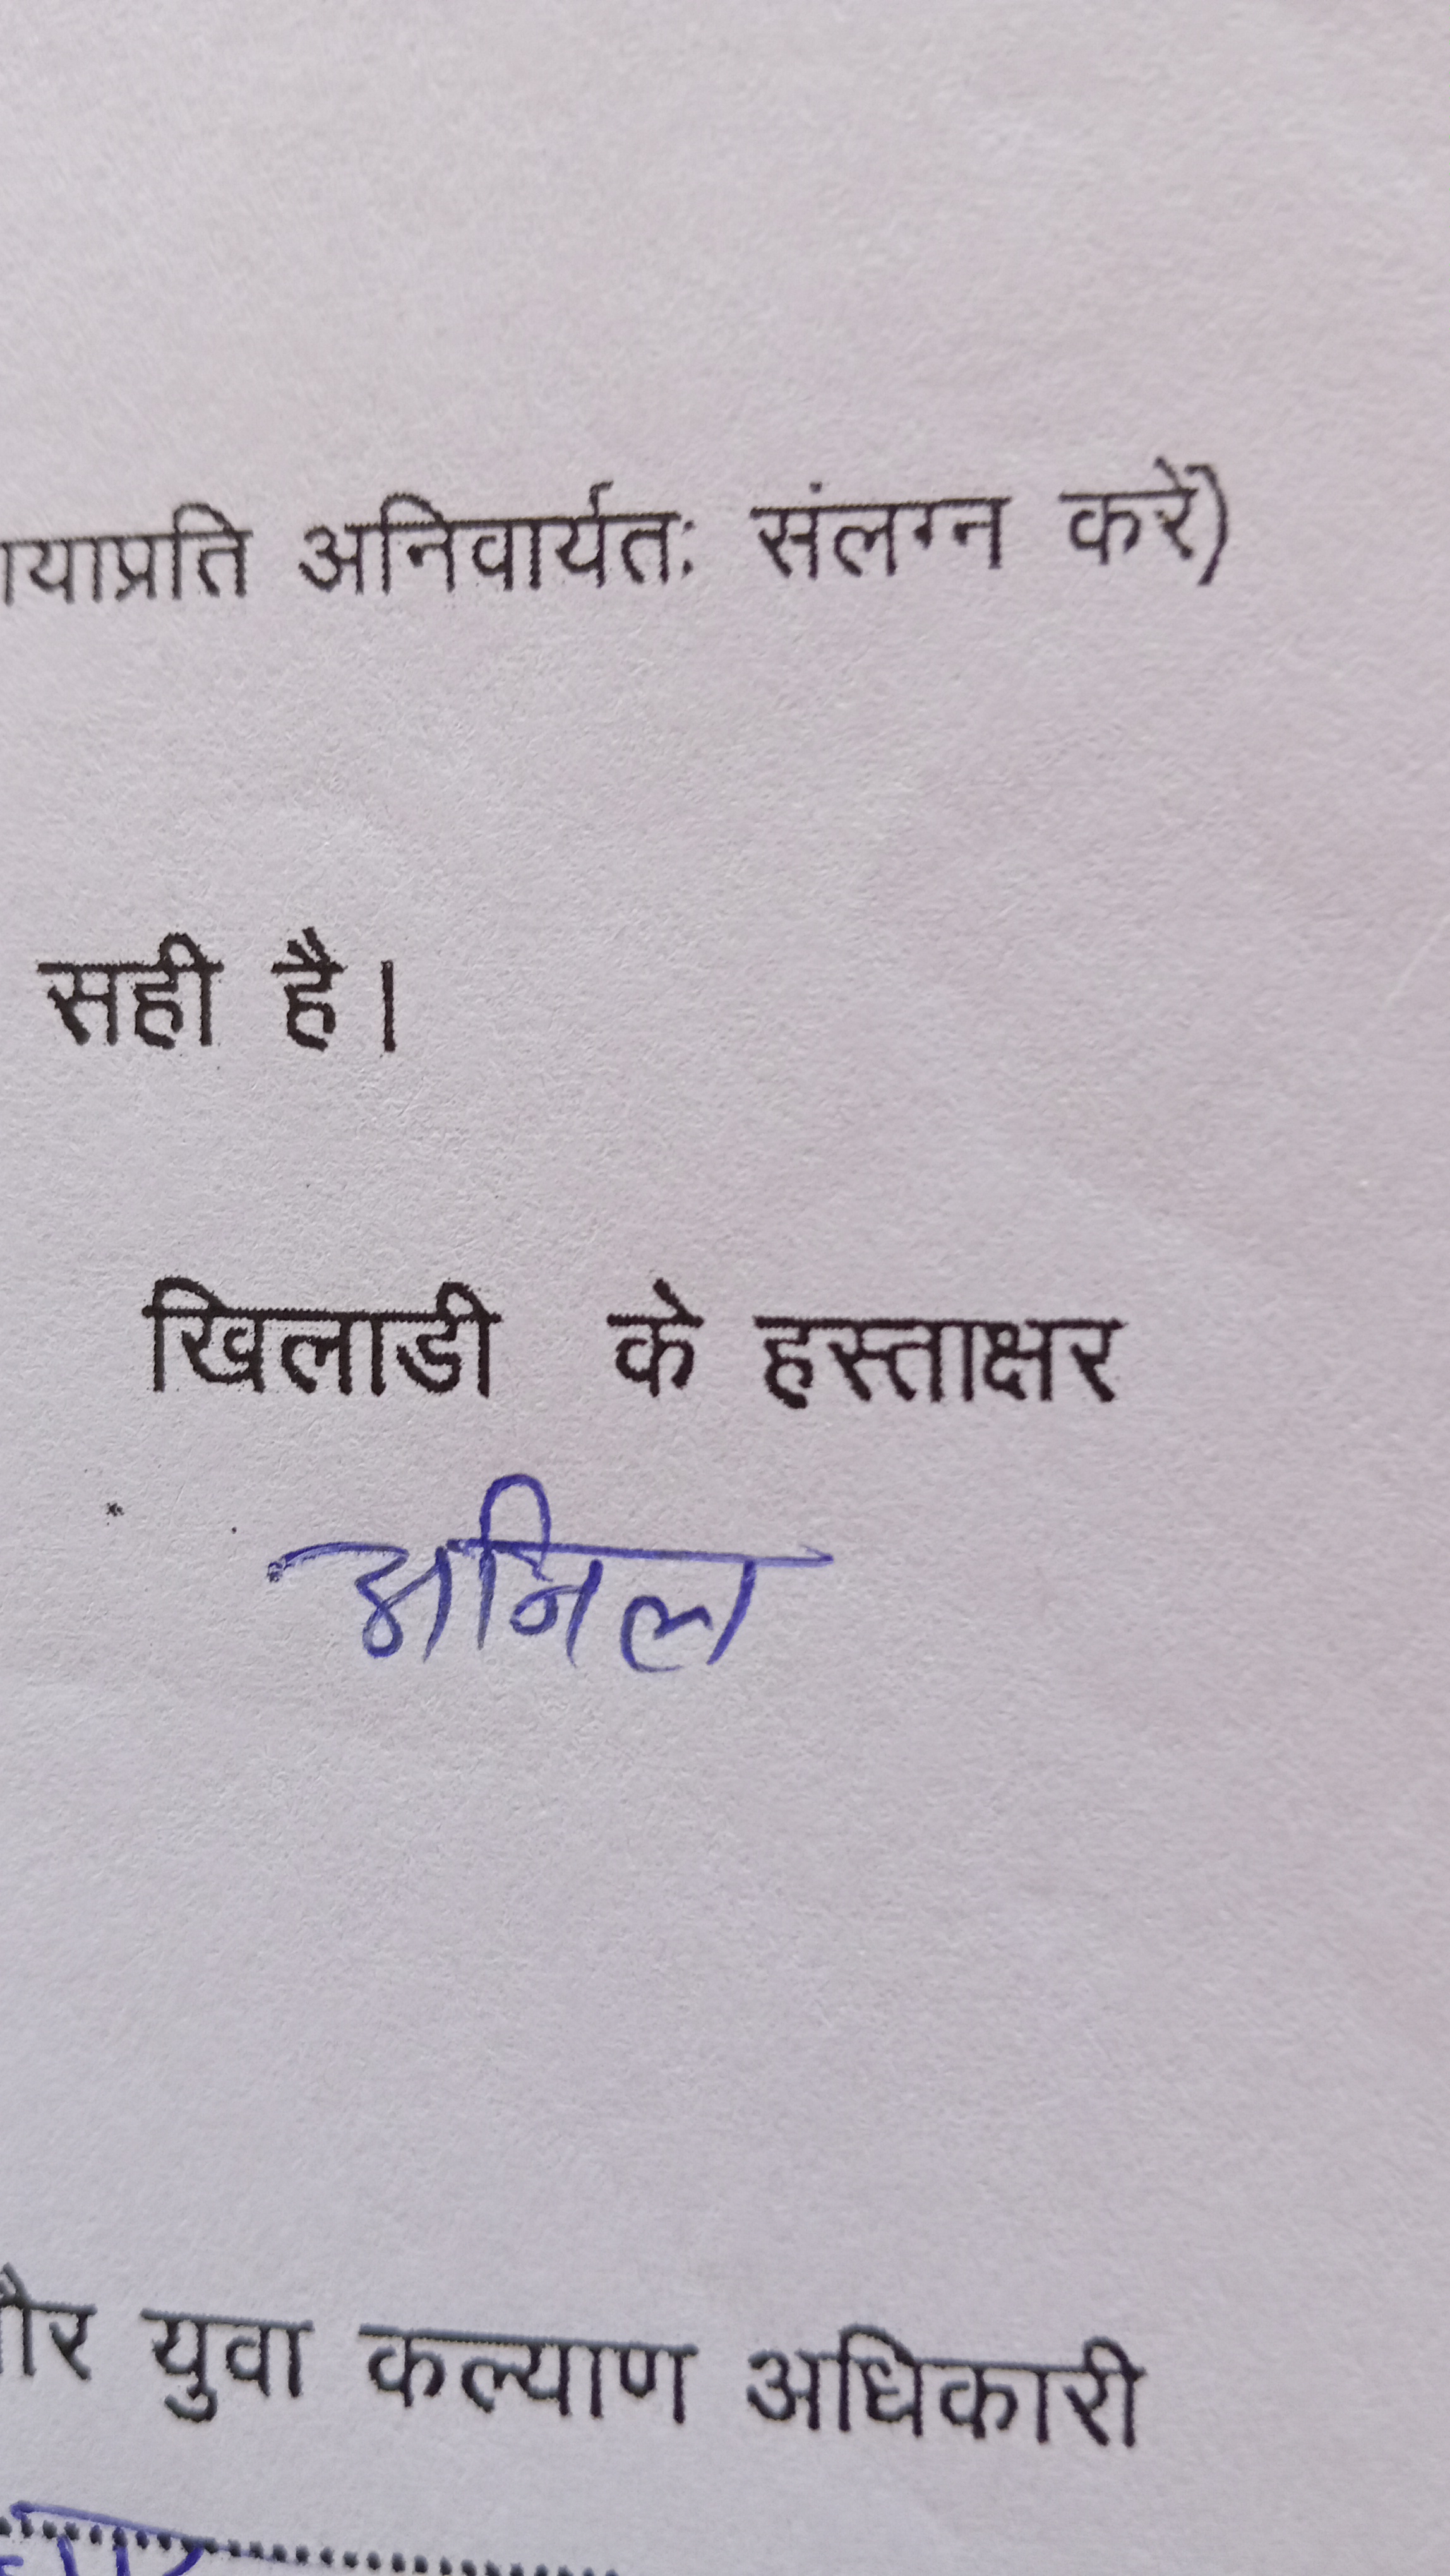 अनिवार्यतः संलग्न करें)
सही है।
खिलाडी के हस्ताक्षर
अनिल
युवा कल्याण अधिकारी